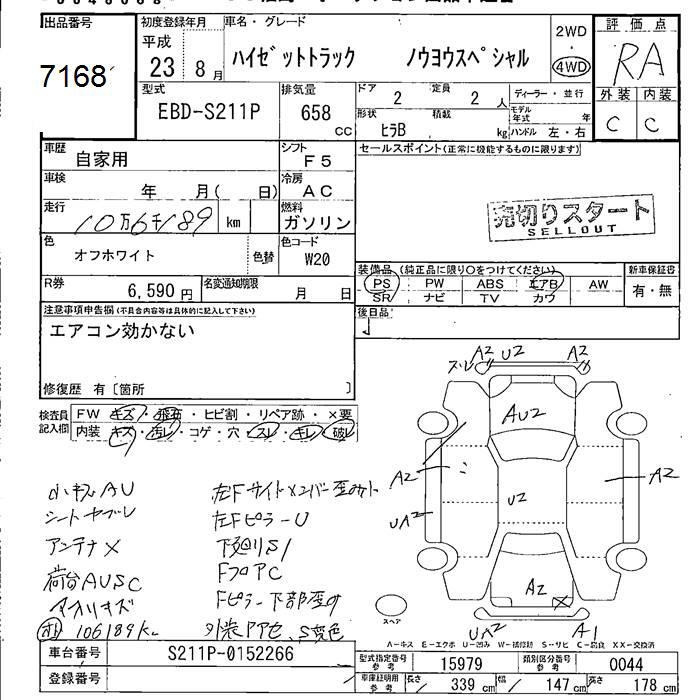 出品番号
7168
初度登録年月
平成
23 8月
車名・グレード
ハイゼットトラック ノウヨウスペシャル
2WD
・
4WD
評価点
RA
外装 内装
C C
型式
EBD-S211P
排気量
658 cc
ドア 2
定員 2 人
形状 ヒラB
積載 kg
ディーラー・並行
モデル年式 年
ハンドル 左・右
車歴 自家用
シフト F5
セールスポイント(正常に機能するものに限ります)
車検 年 月( 日)
冷房 AC
走行 10万6千189 km
燃料 ガソリン
売切りスタート
SELLOUT
色 オフホワイト 色替
色コード W20
装備品(純正品に限り○をつけてください)
新車保証書
PS PW ABS エアB AW
SR ナビ TV カワ
有・無
R券 6,590円
名変通知期限 月 日
注意事項申告欄(不具合内容等は具体的に記入して下さい)
エアコン効かない
修復歴 有〔箇所 〕
後日品
検査員記入欄
FW キズ・飛石・ヒビ割・リペア跡・×要
内装 キズ・汚レ・コゲ・穴・スレ・キレ・破レ
スレ A2 U2 A2
AU2
A2
A2
UA2
U2
A2
UA2 A1
スペア
小キズAU
シートヤブレ
アンテナ×
荷台AUSC
アオリキズ
106189K
左Fサイドメンバー歪
左FピラーU
下廻りS
FフロアC
Fピラー下部歪
外装 S 変色
A-キス E-エクボ U-凹み W-補修跡 S-サビ C-腐食 XX-交換済
車台番号 S211P-0152266
登録番号
型式指定番号 参考 15979
類別区分番号 参考 0044
車庫証明用 参考
長さ 339 cm
幅 147 cm
高さ 178 cm